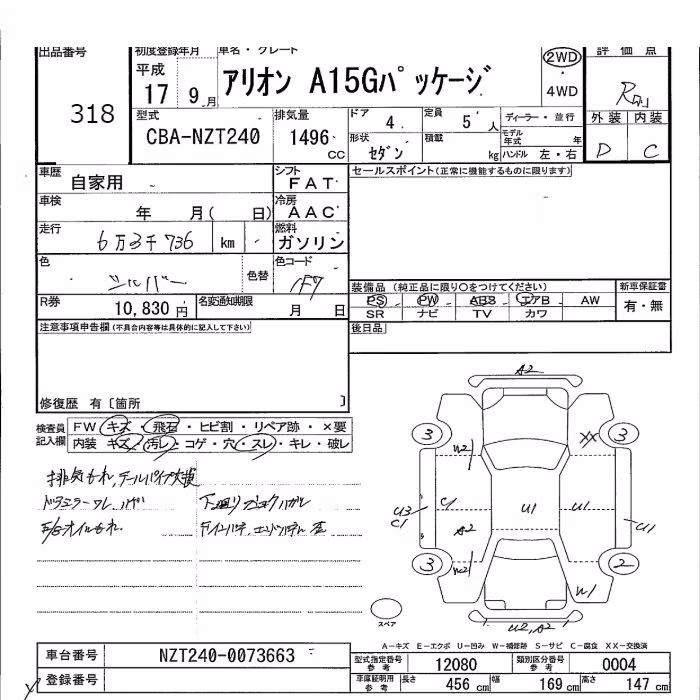 出品番号
318
初度登録年月
平成
17 9 月
車名・グレード
アリオン A15Gパッケージ
2WD
・
4WD
評価点
型式
CBA-NZT240
排気量
1496 cc
ドア
4
定員
5 人
ディーラー・並行
形状
セダン
積載
kg
モデル年式
年
ハンドル 左・右
外装 内装
D C
車歴
自家用
シフト
FAT
セールスポイント(正常に機能するものに限ります)
車検
年 月( 日)
冷房
AAC
走行
6万3千736 km
燃料
ガソリン
色
シルバー
色替
色コード
1F7
装備品(純正品に限り○をつけてください)
新車保証書
PS PW ABS エアB AW
有・無
SR ナビ TV カワ
R券
10,830 円
名変通知期限
月 日
後日品
注意事項申告欄(不具合内容等は具体的に記入して下さい)
修復歴 有〔箇所 〕
検査員記入欄
FW キズ・飛石・ヒビ割・リペア跡・×要
内装 キズ・汚レ・コゲ・穴・スレ・キレ・破レ
排気もれ,テールパイプ欠損
A2
3 W2 XX 3
U3
C1
C1 U1 U1 U1
A2
3 W2 2
W1
U2,A2
スペア
A-キズ E-エクボ U-凹み W-補修跡 S-サビ C-腐食 XX-交換済
車台番号
NZT240-0073663
登録番号
型式指定番号
参考
12080
類別区分番号
参考
0004
車庫証明用
参考
長さ
456 cm
幅
169 cm
高さ
147 cm